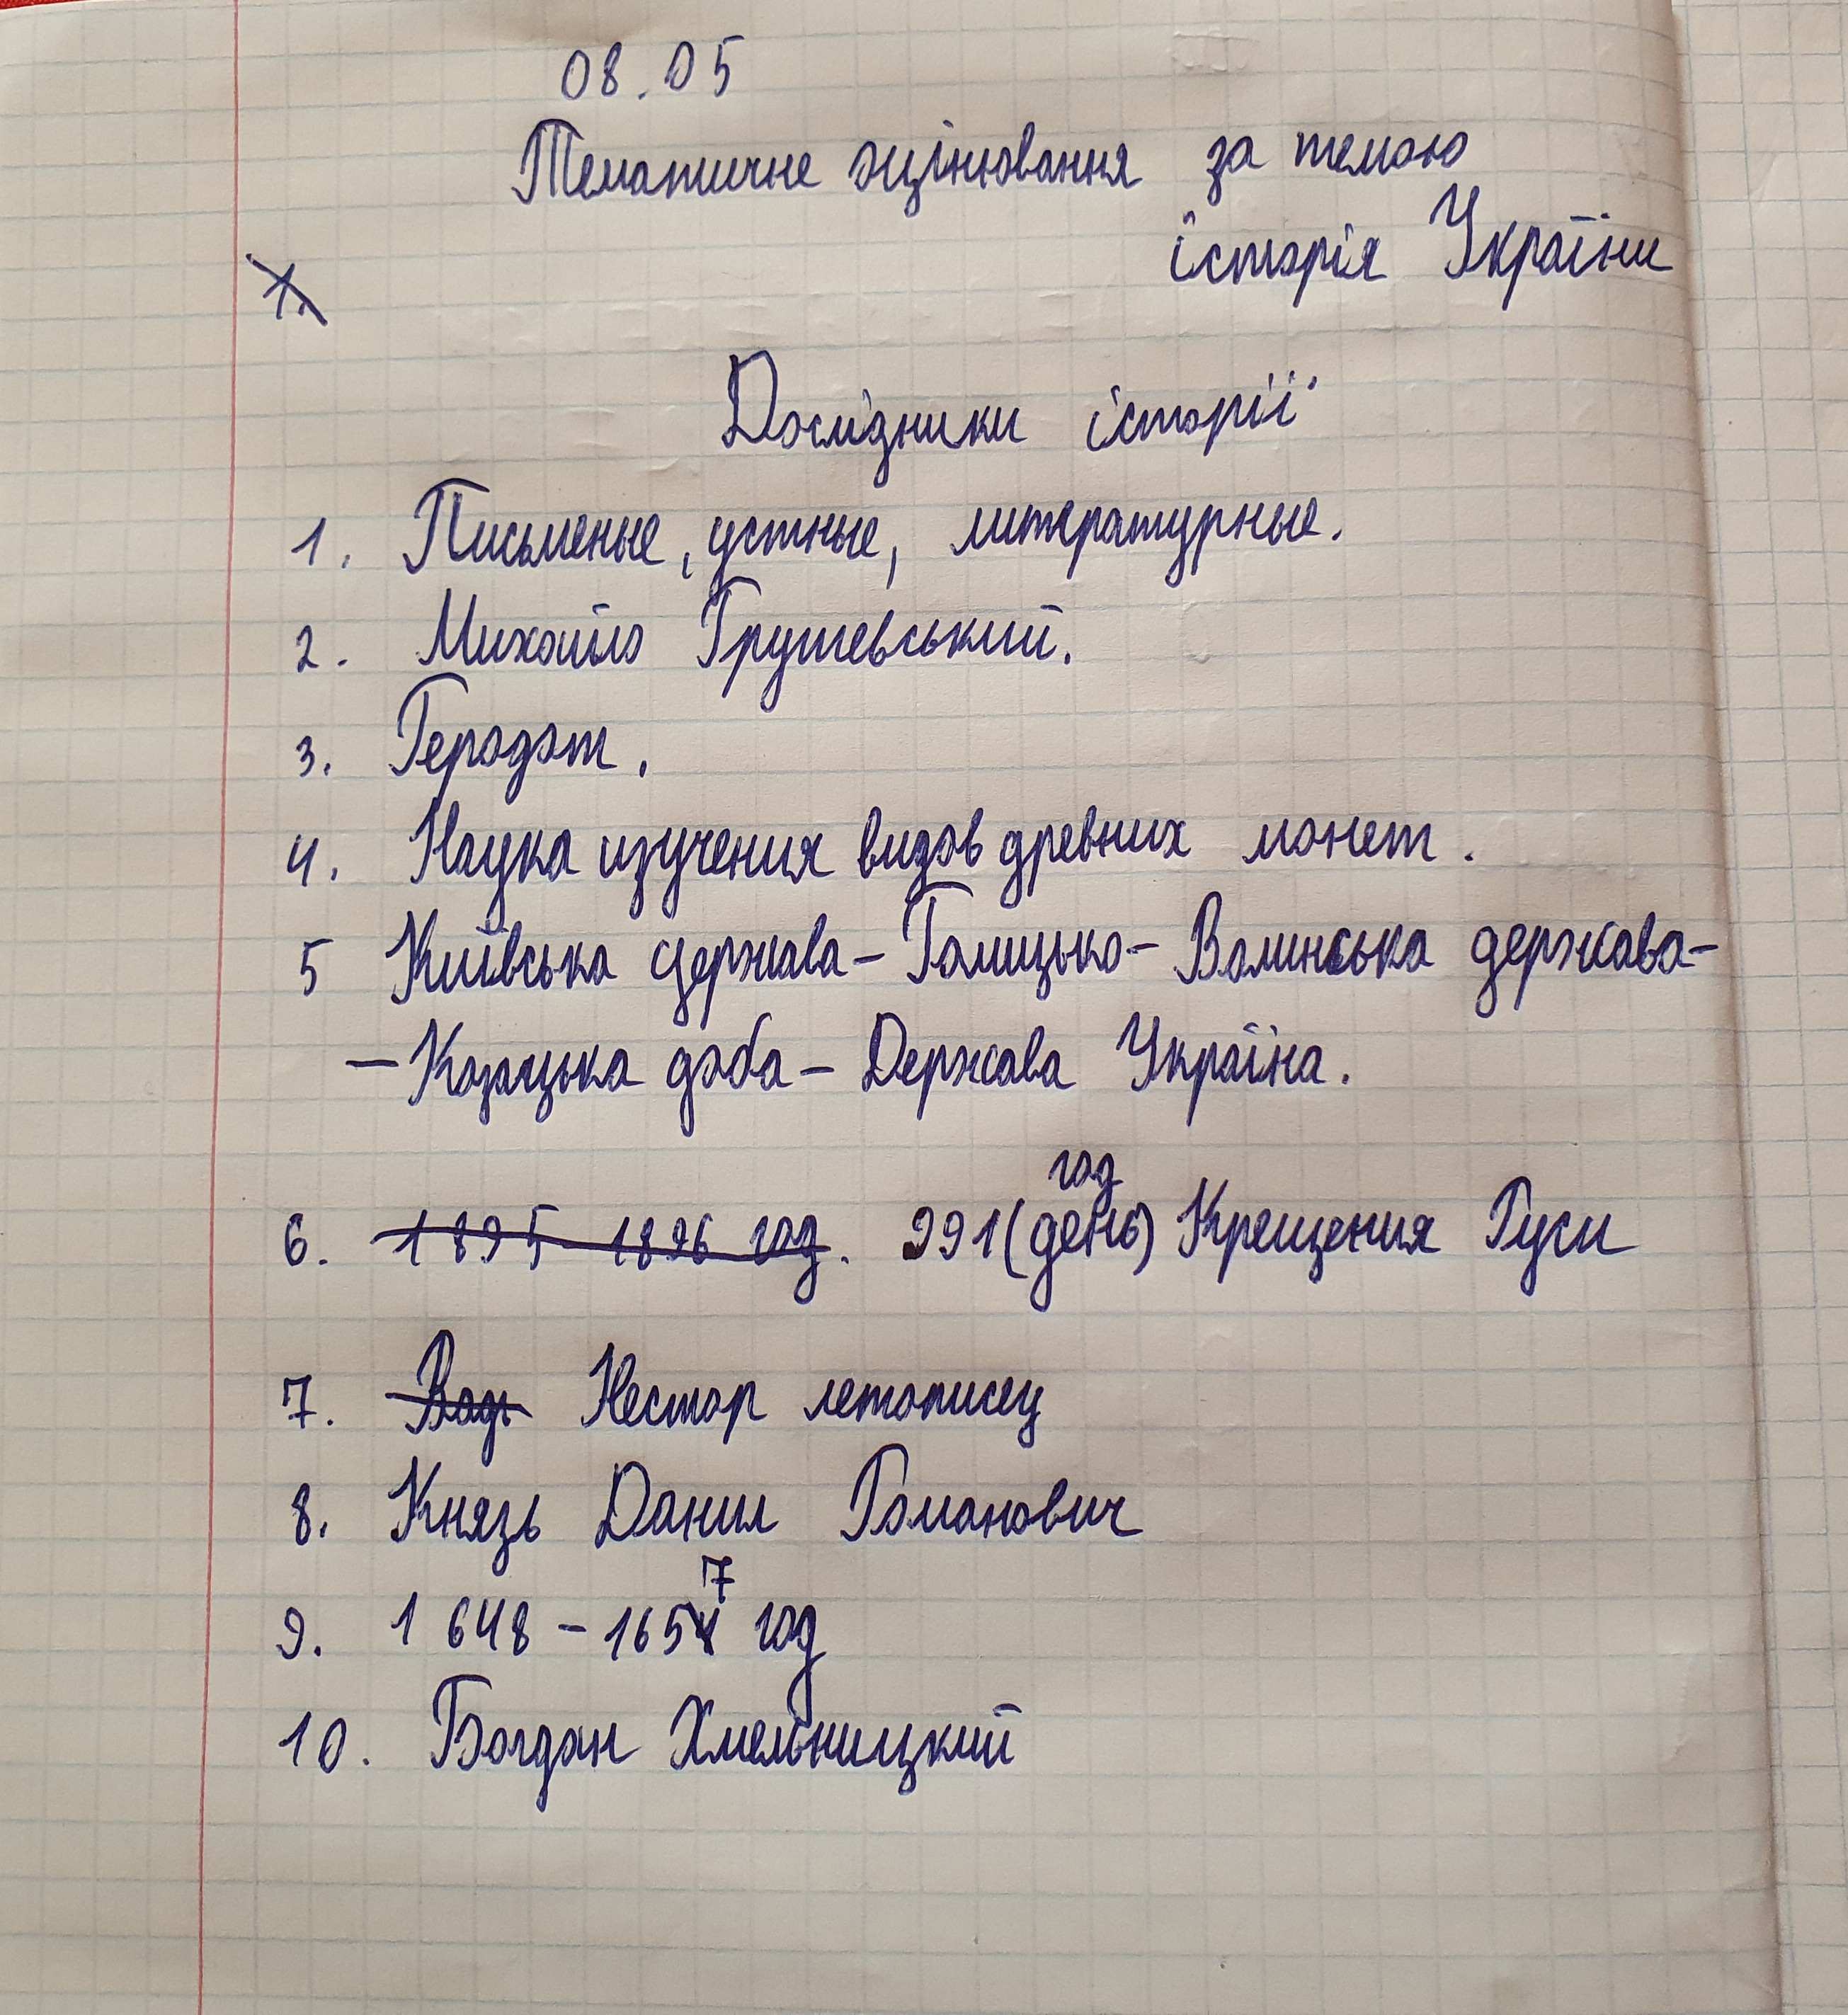 08.05
Тематичне оцінювання за темою
історія України
Дослідники історії
1. Письменые, устные, литературные.
2. Михайло Грушевський.
3. Геродот.
4. Наука изучения видов древних монет.
5 Київська держава - Галицько - Волинська держава -
- Козацька доба - Держава Україна.
год
6. 1895 - 1896 год. 991 (день) Крещения Руси
7. Нестор летописец
8. Князь Данил Романович
7
9. 1648 - 165 год
10. Богдан Хмельницкий